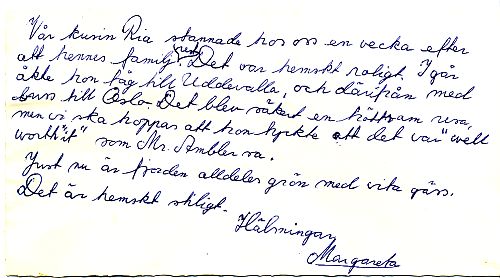 Vår kusin Ria stannade hos oss en vecka efter
att hennes familj rest. Det var hemskt roligt. I går
åkte hon tåg till Uddevalla, och därifrån med
buss till Oslo. Det blev säkert en tröttsam resa,
men vi ska hoppas att hon tyckte att det var "well
worth it" som Mr. Ambler sa.
Just nu är fjorden alldeles grön med vita gäss.
Det är hemskt stiligt.
Hälsningar
Margareta